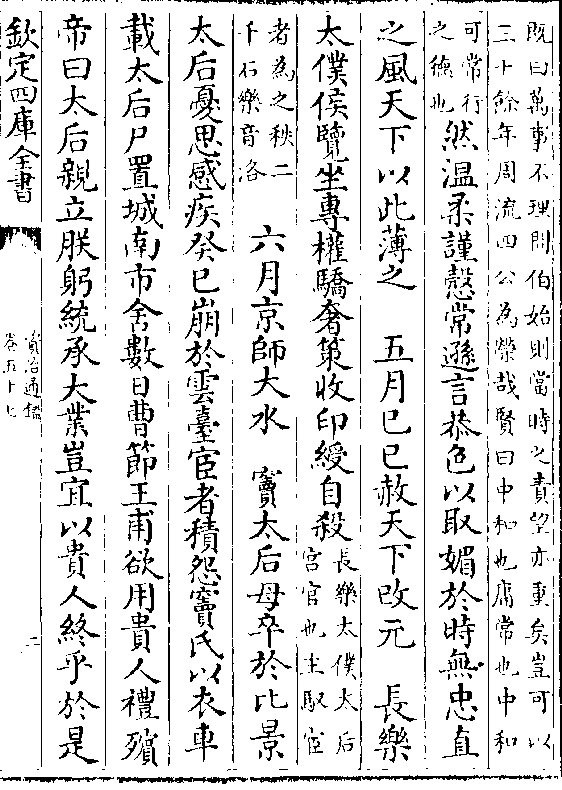 既曰萬事不理問伯始則當時之責望亦重矣豈可以
三十餘年周流四公為榮哉賢曰中和也庸常也中和
可常行
之德也
然温柔謹慤常遜言恭色以取媚於時無忠直
之風天下以此薄之　五月己巳赦天下改元　長樂
太僕侯覽坐專權驕奢策收印綬自殺
長樂太僕太后
宫官也主馭宦
者為之秩二
千石樂音洛
六月京師大水　竇太后母卒於比景
太后憂思感疾癸巳崩於雲臺宦者積怨竇氏以衣車
載太后尸置城南市舍數日曹節王甫欲用貴人禮殯
帝曰太后親立朕躬統承大業豈宜以貴人終乎於是
欽定四庫全書
資治通鑑
卷五十七
二